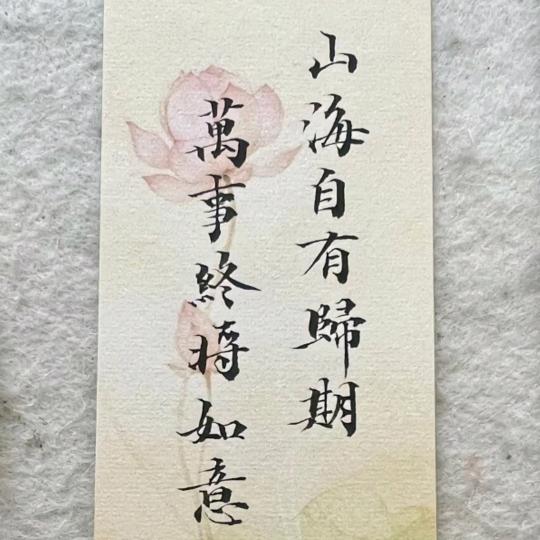 山海自有歸期
萬事終時如意